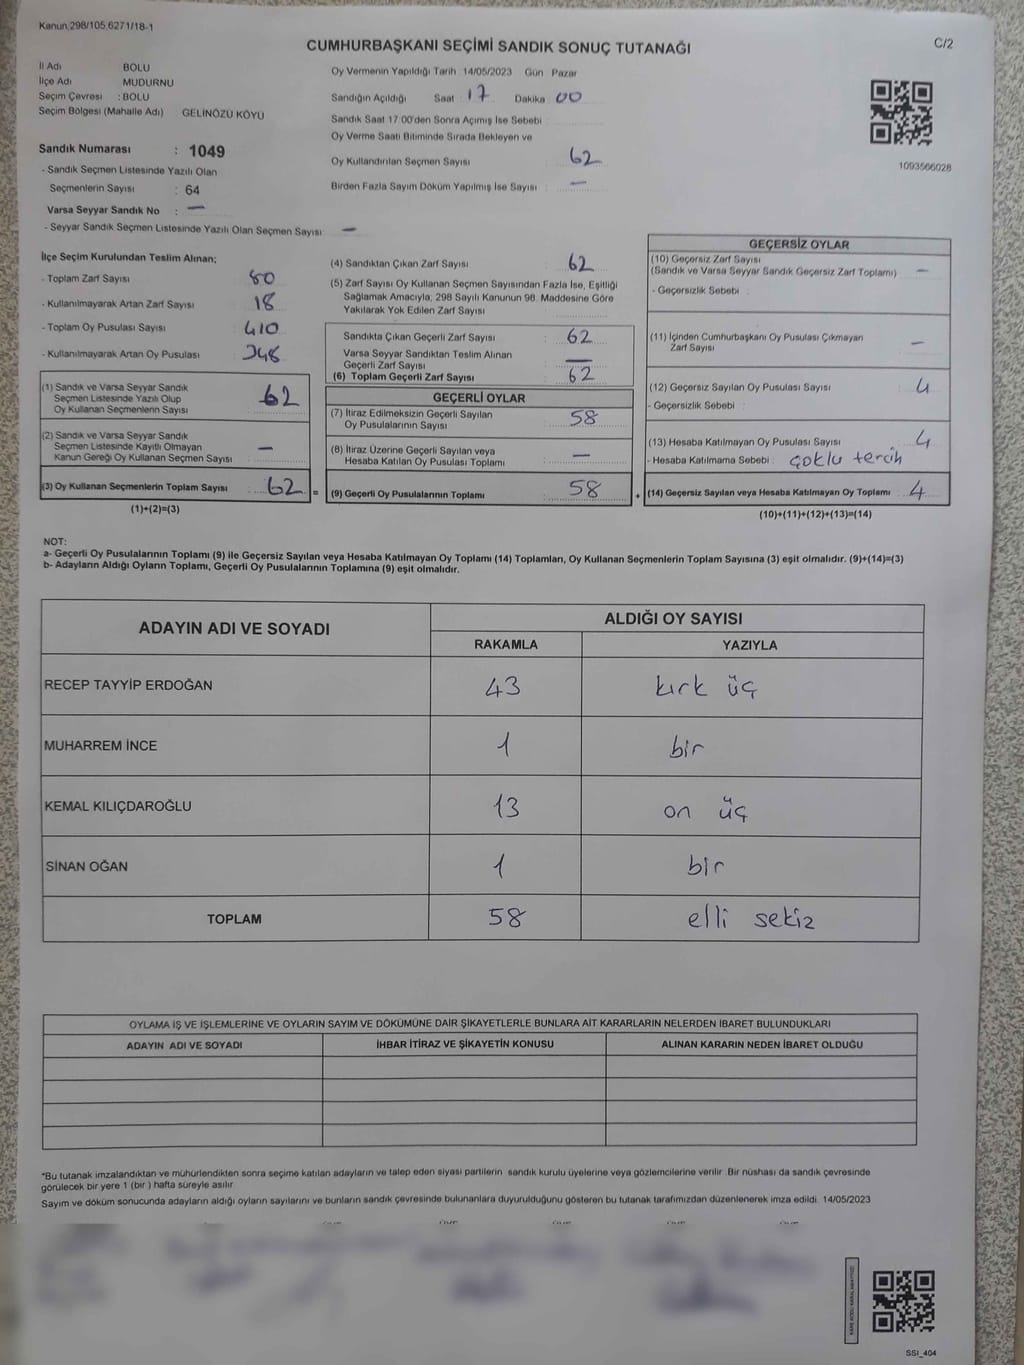 Kanun,298/105,6271/18-1
CUMHURBAŞKANI SEÇİMİ SANDIK SONUÇ TUTANAĞI
C/2
İl Adı BOLU
İlçe Adı MUDURNU
Seçim Çevresi : BOLU
Seçim Bölgesi (Mahalle Adı) : GELİNÖZÜ KÖYÜ
Sandık Numarası : 1049
- Sandık Seçmen Listesinde Yazılı Olan
Seçmenlerin Sayısı : 64
Varsa Seyyar Sandık No : —
- Seyyar Sandık Seçmen Listesinde Yazılı Olan Seçmen Sayısı : —
Oy Vermenin Yapıldığı Tarih : 14/05/2023 Gün : Pazar
Sandığın Açıldığı Saat 17 Dakika 00
Sandık Saat 17:00'den Sonra Açımış İse Sebebi :
Oy Verme Saati Bitiminde Sırada Bekleyen ve
Oy Kullandırılan Seçmen Sayısı : 62
Birden Fazla Sayım Döküm Yapılmış İse Sayısı : —
1093566028
İlçe Seçim Kurulundan Teslim Alınan;
- Toplam Zarf Sayısı : 80
- Kullanılmayarak Artan Zarf Sayısı : 18
- Toplam Oy Pusulası Sayısı : 410
- Kullanılmayarak Artan Oy Pusulası : 348
(1) Sandık ve Varsa Seyyar Sandık
Seçmen Listesinde Yazılı Olup
Oy Kullanan Seçmenlerin Sayısı : 62
(2) Sandık ve Varsa Seyyar Sandık
Seçmen Listesinde Kayıtlı Olmayan
Kanun Gereği Oy Kullanan Seçmen Sayısı : —
(3) Oy Kullanan Seçmenlerin Toplam Sayısı : 62 =
(1)+(2)=(3)
(4) Sandıktan Çıkan Zarf Sayısı : 62
(5) Zarf Sayısı Oy Kullanan Seçmen Sayısından Fazla İse, Eşitliği
Sağlamak Amacıyla; 298 Sayılı Kanunun 98. Maddesine Göre
Yakılarak Yok Edilen Zarf Sayısı :
Sandıkta Çıkan Geçerli Zarf Sayısı : 62
Varsa Seyyar Sandıktan Teslim Alınan
Geçerli Zarf Sayısı : —
(6) Toplam Geçerli Zarf Sayısı : 62
GEÇERLİ OYLAR
(7) İtiraz Edilmeksizin Geçerli Sayılan
Oy Pusulalarının Sayısı : 58
(8) İtiraz Üzerine Geçerli Sayılan veya
Hesaba Katılan Oy Pusulası Toplamı : —
(9) Geçerli Oy Pusulalarının Toplamı : 58 +
GEÇERSİZ OYLAR
(10) Geçersiz Zarf Sayısı
(Sandık ve Varsa Seyyar Sandık Geçersiz Zarf Toplamı) : —
- Geçersizlik Sebebi :
(11) İçinden Cumhurbaşkanı Oy Pusulası Çıkmayan
Zarf Sayısı : —
(12) Geçersiz Sayılan Oy Pusulası Sayısı : 4
- Geçersizlik Sebebi :
(13) Hesaba Katılmayan Oy Pusulası Sayısı : 4
- Hesaba Katılmama Sebebi : çoklu tercih
(14) Geçersiz Sayılan veya Hesaba Katılmayan Oy Toplamı : 4
(10)+(11)+(12)+(13)=(14)
NOT:
a- Geçerli Oy Pusulalarının Toplamı (9) ile Geçersiz Sayılan veya Hesaba Katılmayan Oy Toplamı (14) Toplamları, Oy Kullanan Seçmenlerin Toplam Sayısına (3) eşit olmalıdır. (9)+(14)=(3)
b- Adayların Aldığı Oyların Toplamı, Geçerli Oy Pusulalarının Toplamına (9) eşit olmalıdır.
ADAYIN ADI VE SOYADI ALDIĞI OY SAYISI
RAKAMLA YAZIYLA
RECEP TAYYİP ERDOĞAN 43 kırk üç
MUHARREM İNCE 1 bir
KEMAL KILIÇDAROĞLU 13 on üç
SİNAN OĞAN 1 bir
TOPLAM 58 elli sekiz
OYLAMA İŞ VE İŞLEMLERİNE VE OYLARIN SAYIM VE DÖKÜMÜNE DAİR ŞİKAYETLERLE BUNLARA AİT KARARLARIN NELERDEN İBARET BULUNDUKLARI
ADAYIN ADI VE SOYADI İHBAR İTİRAZ VE ŞİKAYETİN KONUSU ALINAN KARARIN NEDEN İBARET OLDUĞU
*Bu tutanak imzalandıktan ve mühürlendikten sonra seçime katılan adayların ve talep eden siyasi partilerin sandık kurulu üyelerine veya gözlemcilerine verilir. Bir nüshası da sandık çevresinde
görülecek bir yere 1 (bir ) hafta süreyle asılır.
Sayım ve döküm sonucunda adayların aldığı oyların sayılarını ve bunların sandık çevresinde bulunanlara duyurulduğunu gösteren bu tutanak tarafımızdan düzenlenerek imza edildi. 14/05/2023
KARE KODU KARALAMAYINIZ!
SSI_404